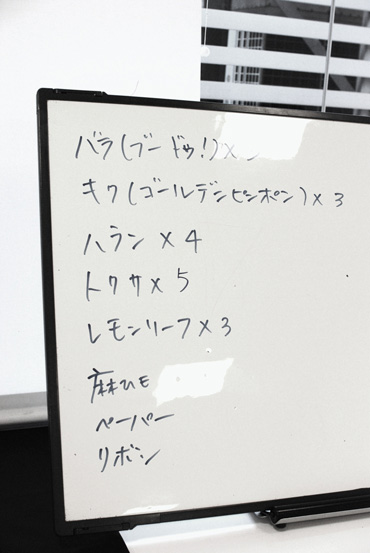 バラ(ブードゥ!)×
キク(ゴールデンピンポン)×3
ハラン×4
トクサ×5
レモンリーフ×3
麻ひも
ペーパー
リボン